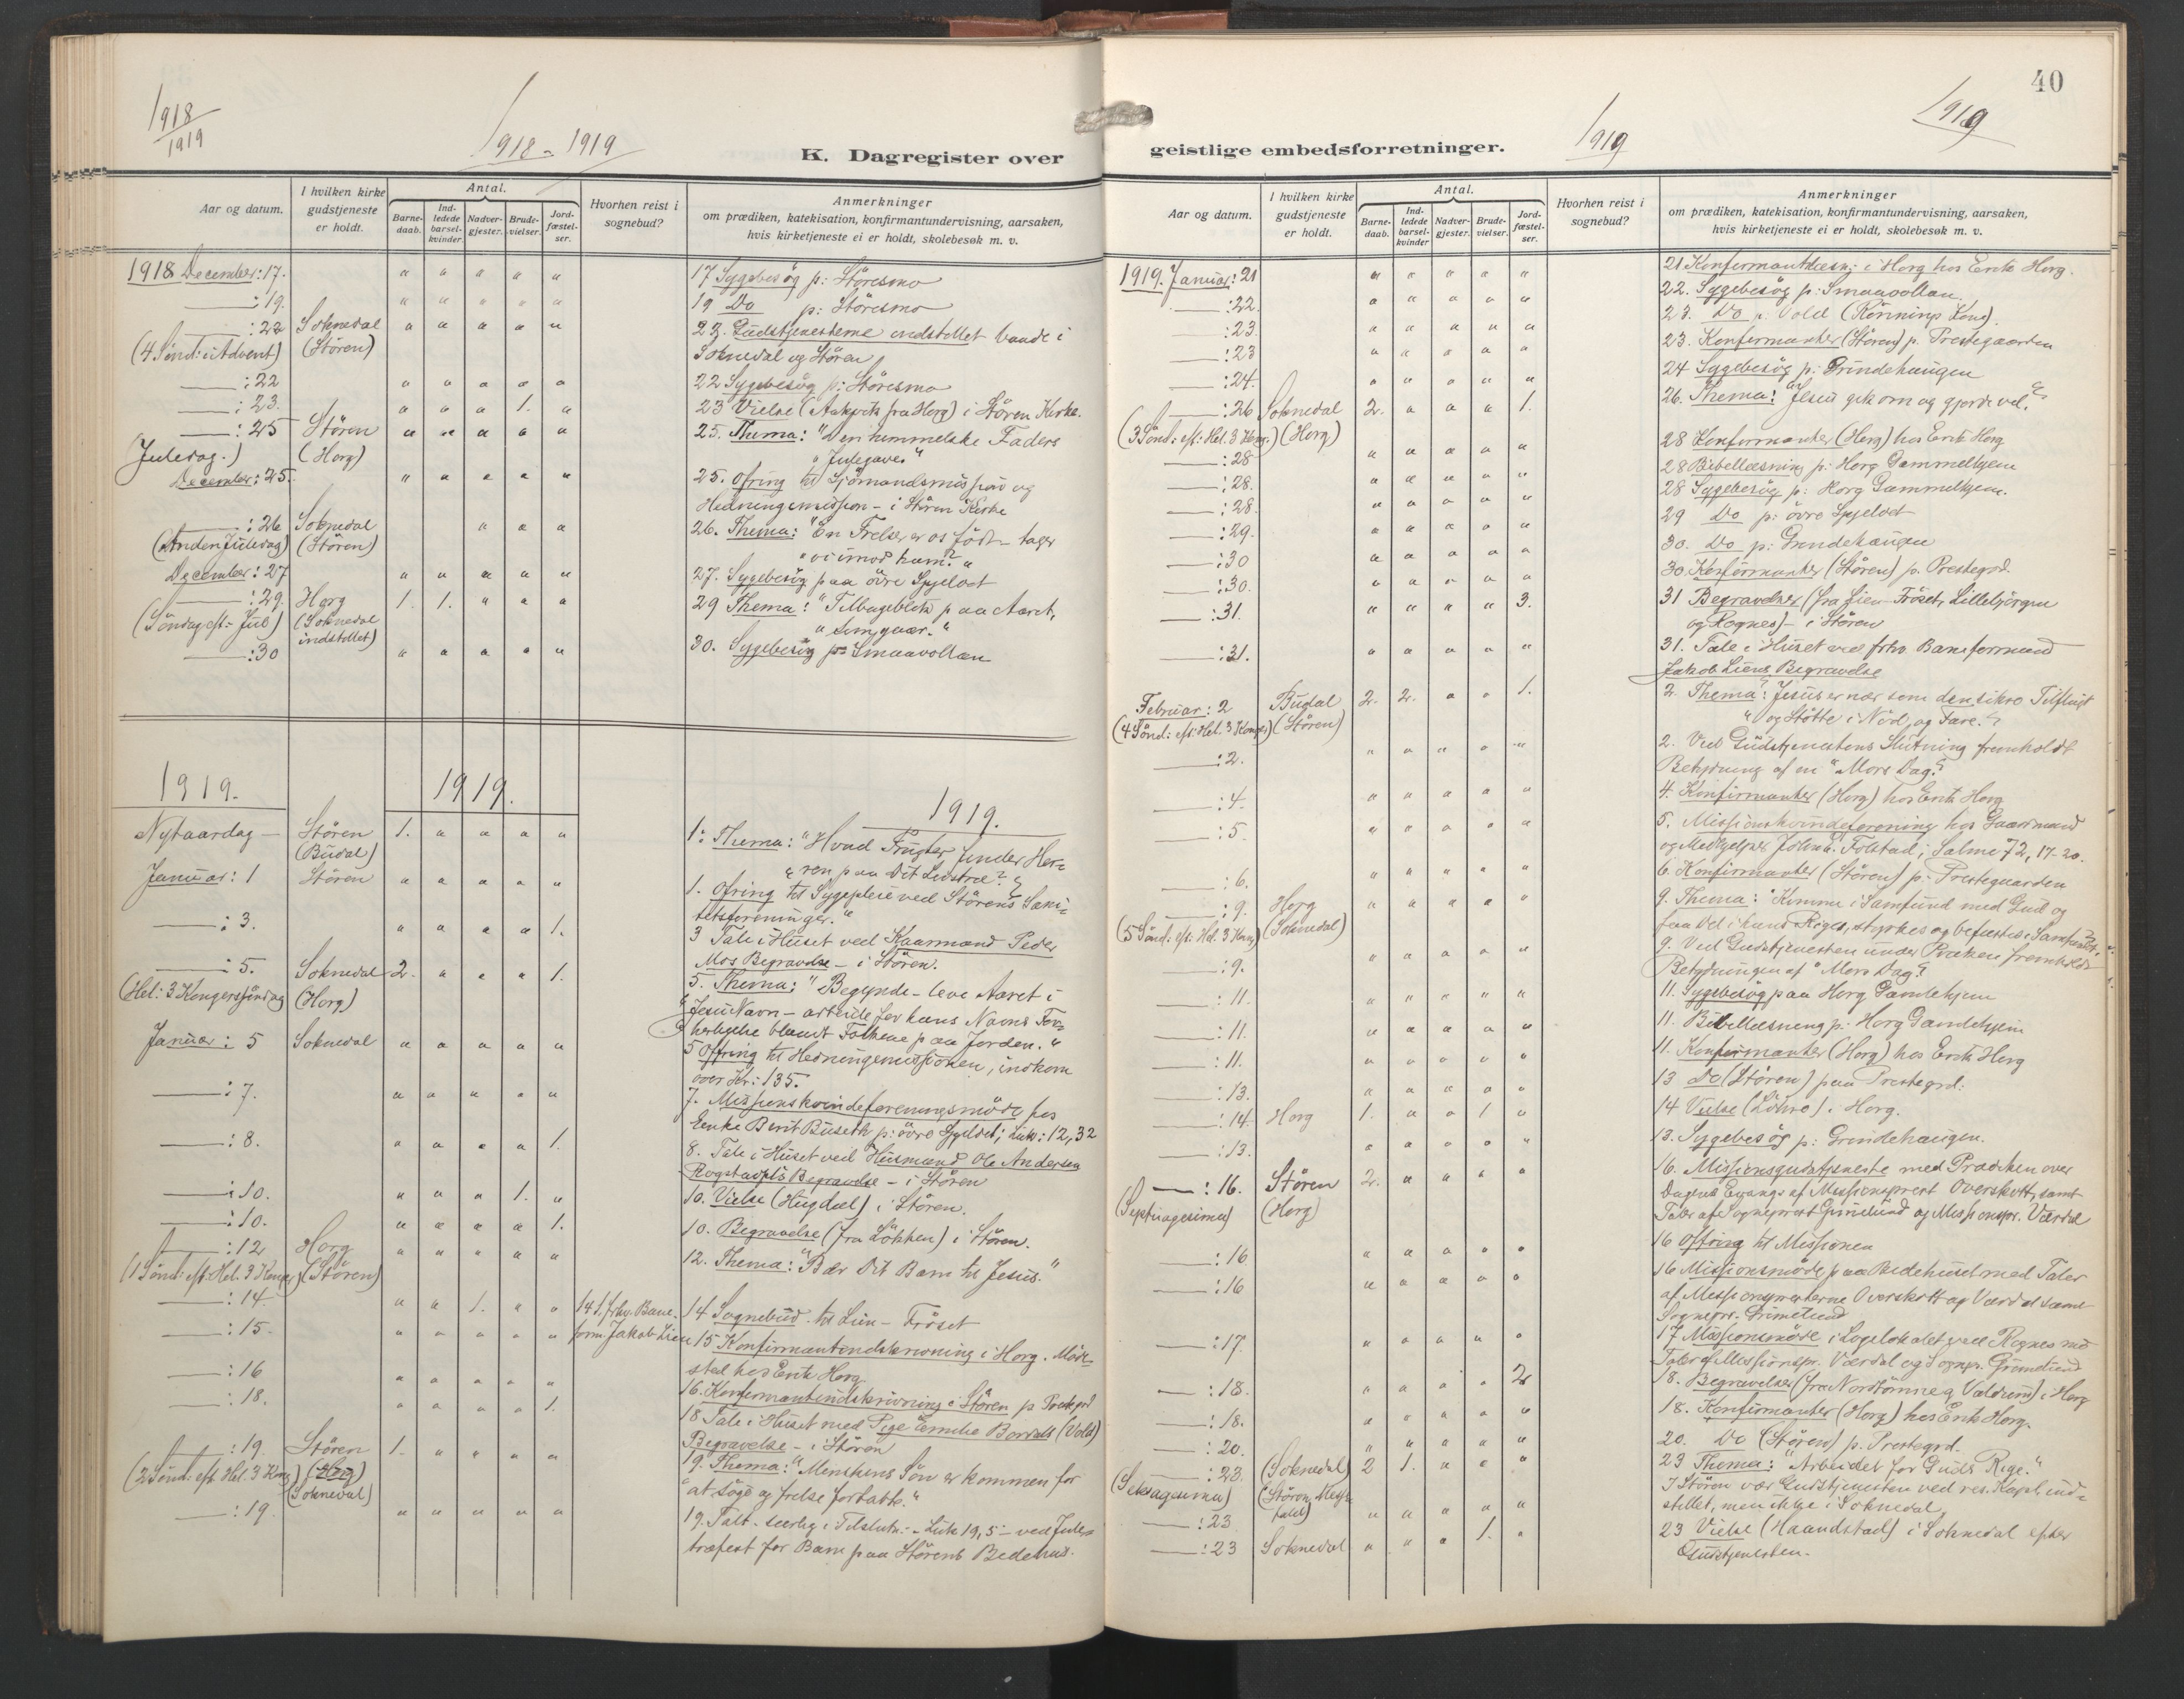 1918
1919
1918-1919
K. Dagregister over
Aar og datum.
I hvilken kirke gudstjeneste er holdt.
Antal.
Barnedaab.
Indledede barselkvinder.
Nadvergjester.
Brudevielser.
Jordfæstelser.
Hvorhen reist i sognebud?
Anmerkninger
om prædiken, katekisation, konfirmantundervisning, aarsaken,
hvis kirketjeneste ei er holdt, skolebesøk m. v.
1918 December: 17. " " " " " 17 Sygebesög p: Störesmo
: 19. " " " " " 19 Do p: Störesmo
: 22 Soknedal " " " " " 22. Gudstjenesterne indstillet baade i
(4 Sönd: i Advent) (Stören) Soknedal og Stören
: 22 " " " " " 22 Sygebesög p: Störesmo
: 23. " " " 1. " 23 Vielse (fra Horg) i Stören Kirke.
: 25 Stören " " " " " 25. Thema: "Den himmelske Faders
(Juledag.) (Horg) "Julegaver"
December: 25. " " " " " 25. Ofring til Sjömandsmission og
Hedningemission - i Stören Kirke
: 26 Soknedal " " " 26. Thema: "En Frelser er os född - tager
(Anden Juledag) (Stören) "vi imod ham?"
December: 27 " " " " " 27. Sygebesög paa övre Spjeldet
: 29. Horg 1. 1. " " " 29 Thema: "Tilbageblik paa Aaret,
(Söndag eft: Jul) (Soknedal indstillet) "som gaar."
: 30 " " " " " 30. Sygebesög p: Smaavollan
1919. 1919. 1919.
Nytaardag - Stören 1. " " " " 1: Thema: "Hvad Frugter finder Her-
(Budal) "ren paa Dit Livstræ?"
Januar: 1 Stören " " " " " 1. Ofring til Sygepleie ved Störens Sani-
tetsforeninger."
: 3. " " " " 1. 3 Tale i Huset ved Kaarmand Peder
Mos Begravelse - i Stören.
: 5. Soknedal 2. " " " 1. 5. Thema: "Begynde - leve Aaret i
(Hel: 3 Kongersöndag (Horg) "Jesu Navn - arbeide for hans Navns For-
"herligelse blandt Folkene paa Jorden."
Januar: 5 Soknedal " " " " " 5 Offring til Hedningemissionen, indkom
over Kr: 135.
: 7. " " " " " 7. Missionskvindeforeningsmöde hos
Enke Berit Buseth p: övre Spjeldet; Luk: 12, 32
: 8. " " " " 1. 8. Tale i Huset ved Husmand Ole Andersen
Rogstadpls Begravelse - i Stören
: 10. " " " 1. " 10. Vielse (Hugdal) i Stören.
: 10. " " " " 1. 10. Begravelse (fra Lökken) i Stören.
: 12 Horg " " " " " 12. Thema: "Bær Dit Barn til Jesus."
(1 Sönd: eft: Hel. 3 Konger) (Stören)
: 14. " " 1. " " 14 f. frhv. Bane- 14 Sognebud til Lien - Fröset
: 15. " " " " " form. Jakob Lien 15 Konfirmantindskrivning i Horg. Möde-
sted hos Erik Horg.
: 16 " " " " " 16. Konfirmantindskrivning i Stören p. Prestegrd
: 18. " " " " 1. 18 Tale i Huset med Pige Emilie Bordals (Vold)
Begravelse - i Stören
: 19. Stören 1. " " " " 19. Thema: "Menskens Sön er kommen for
(2 Sönd: eft. Hel. 3 Kong) (Horg) (Soknedal) "at söge og frelse fortabte."
: 19. " " " " " 19. Talt - særlig i Tilslutn:- Luk 19, 5 - ved Jule-
træfest for Barn paa Störens Bedehus.
40
1919
1919
geistlige embedsforretninger.
Aar og datum.
I hvilken kirke gudstjeneste er holdt.
Antal.
Barnedaab.
Indledede barselkvinder
Nadvergjester.
Brudevielser.
Jordfæstelser.
Hvorhen reist i sognebud?
Anmerkninger
om prædiken, katekisation, konfirmantundervisning, aarsaken,
hvis kirketjeneste ei er holdt, skolebesøk m. v.
1919. Januar: 21 " " " " " 21. Konfirmantlæsn: i Horg hos Erik Horg.
: 22. " " " " " 22. Sygebesög p: Smaavollan.
: 23. " " " " " 23. Do p. Vold (Rönnings Kone).
: 23 " " " " " 23. Konfirmanter (Stören) p. Prestegaarden
: 24. " " " " " 24 Sygebesög p: Grindehaugen
: 26 Soknedal 2. " " " 1. 26. Thema: "Jesus gik om og gjorde vel."
(3 Sönd: eft: Hel. 3 Kong:) (Horg)
: 28 " " " " " 28 Konfirmanter (Horg) hos Erik Horg
: 28. " " " " " 28 Bibellæsning p: Horg Gammelhjem
: 28. " " " " " 28 Sygebesög p: Horg Gammelhjem.
: 29. " " " " " 29 Do p: övre Spjeldet
: 30 " " " " " 30. Do p: Grindehaugen
: 30. " " " " " 30. Konfirmanter (Stören) p. Prestegrd.
: 31. " " " " 3. 31 Begravelser (fra Lien - Fröset, Lillebjörgen
og Rognes) - i Stören
: 31. " " " " " 31. Tale i Huset ved frhv. Baneformand
Jakob Liens Begravelse
Februar: 2 Budal 2. 2. " " 1. 2. Thema: "Jesus er nær som den sikre Tilflugt
(4 Sönd: eft: Hel. 3 Konger) (Stören) "og Stötte i Nöd og Fare."
: 2. " " " " " 2. Ved Gudstjenestens Slutning fremholdt
Betydning af en "Mors Dag."
: 4. " " " " " 4. Konfirmanter (Horg) hos Erik Horg
: 5. " " " " " 5. Missionskvindeforening hos Gaardmand
og Medhjelper Folstad; Salme 72, 17-20.
: 6. " " " " " 6. Konfirmanter (Stören) p: Prestegaarden
: 9. Horg " " " " " 9. Thema: "Komme i Samfund med Gud og
(5 Sönd: eft: Hel. 3 Kong) (Soknedal) faa Del i hans Riges, styrkes og befæstes i Samfundet.
: 9. " " " " " 9. Ved Gudstjenesten under Præken fremholdt
Betydningen af "Mors Dag."
: 11. " " " " " 11. Sygebesög paa Horg Gamlehjem
: 11. " " " " " 11. Bibellæsning p: Horg Gamlehjem
: 11. " " " " " 11. Konfirmanter (Horg) hos Erik Horg
: 13. " " " " " 13 Do (Stören) paa Prestegrd:
: 14. Horg 1. " " 1 " 14 Vielse (Löhre) i Horg.
: 13. " " " " " 13. Sygebesög p: Grindehaugen.
: 16. Stören 2. " " " " 16. Missionsgudstjeneste med Prædiken over
(Septuagesima) (Horg) Dagens Evang: af Missionsprest Overskott, samt
Taler af Sogneprest Grimelund og Missionspr. Værdal
: 16 " " " " " 16 Offring til Missionen
: 16 " " " " " 16 Missionsmöde paa Bedehuset med Taler
af Missionspresterne Overskott og Værdal samt
Sognepr. Grimelund
: 17. " " " " " 17 Missionsmöde i Logelokalet ved Rognes med
Taler af Missionspr. Værdal og Sognepr. Grimelund
: 18. " " " " 2 18. Begravelser (fra Nordtömme og Valdrum) i Horg
: 18. " " " " " 18. Konfirmanter (Horg) hos Erik Horg.
: 20. " " " " " 20. Do (Stören) p. Prestegrd.
: 23. (Soknedal) 2 1. " " " 23 Thema: "Arbeidet for Guds Rige."
(Seksagesima) (Stören, Messefald) I Stören var Gudstjenesten ved res. Kapl. ind-
stillet, men ikke i Soknedal.
: 23 " " " " "
: 23 Soknedal " " " 1. " 23 Vielse (Haandstad) i Soknedal efter
Gudstjenesten.